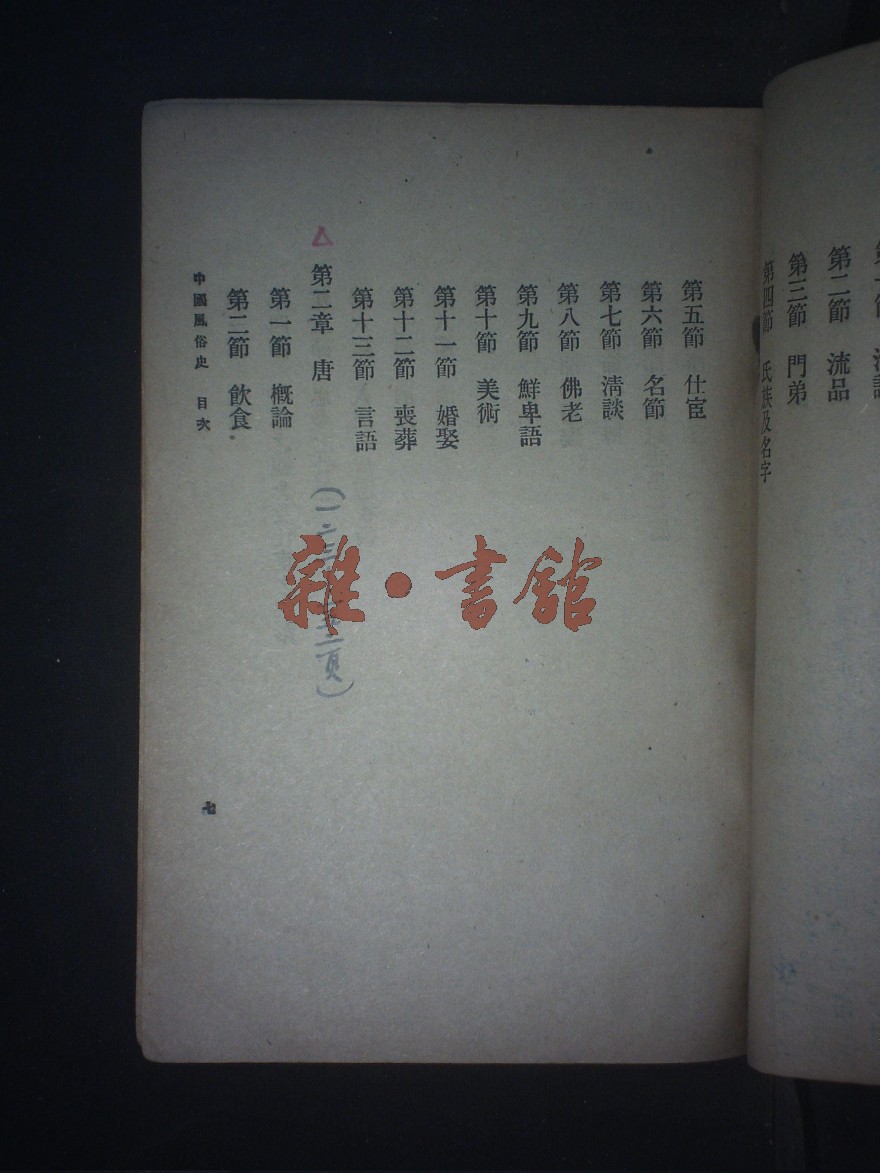 第二節 流品
第三節 門弟
第四節 氏族及名字
第五節 仕宦
第六節 名節
第七節 淸談
第八節 佛老
第九節 鮮卑語
第十節 美術
第十一節 婚娶
第十二節 喪葬
第十三節 言語
第二章 唐
第一節 概論
第二節 飲食
中國風俗史 目次
七
雜·書館